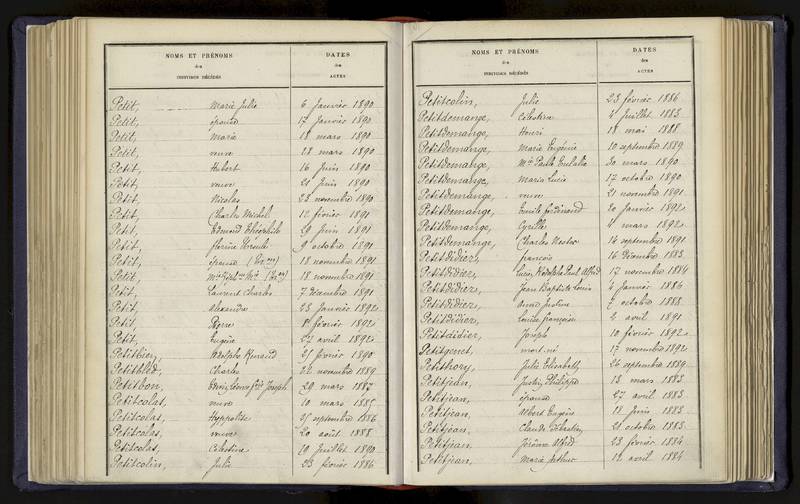 NOMS ET PRÉNOMS
des
INDIVIDUS DÉCÉDÉS
DATES
des
ACTES
Petit, Marie Julie 6 Janvier 1890
Petit, épouse 17 Janvier 1890
Petit, Marie 18 mars 1890
Petit, veuve 28 mars 1890
Petit, Hubert 16 Juin 1890
Petit, veuve 21 Juin 1890
Petit, Nicolas 23 novembre 1890
Petit, Charles Michel 12 février 1891
Petit, Edmond Théophile 29 Juin 1891
Petit, Ursule 9 octobre 1891
Petit, épouse 18 novembre 1891
Petit, 18 novembre 1891
Petit, Laurent Charles 7 décembre 1891
Petit, Alexandre 23 Janvier 1892
Petit, Pierre 8 février 1892
Petit, Eugène 22 avril 1892
Petitbien, Adolphe Renaud 25 février 1890
Petitbled, Charles 22 novembre 1889
Petitbon, Joseph 20 mars 1887
Petitcolas, veuve 10 mars 1885
Petitcolas, Hyppolite 25 septembre 1886
Petitcolas, veuve 20 août 1888
Petitcolas, Célestine 20 Juillet 1890
Petitcolin, Julie 23 février 1886
NOMS ET PRÉNOMS
des
INDIVIDUS DÉCÉDÉS
DATES
des
ACTES
Petitcolin, Julie 23 février 1886
Petitdemange, Célestine 4 Juillet 1883
Petitdemange, Henri 18 mai 1888
Petitdemange, Marie Eugénie 10 septembre 1889
Petitdemange, Mie Paule Eulalie 30 mars 1890
Petitdemange, Marie Lucie 17 octobre 1890
Petitdemange, veuve 21 novembre 1891
Petitdemange, Emile ferdinand 20 Janvier 1892
Petitdemange, Cyrille 4 mars 1892
Petitdemange, Charles Nestor 14 septembre 1891
Petitdidier, françois 16 Décembre 1883
Petitdidier, Paul Alfred 17 novembre 1884
Petitdidier, Jean Baptiste Louis 4 Janvier 1886
Petitdidier, Anne Justine 2 octobre 1888
Petitdidier, Louise françoise 2 avril 1891
Petitdidier, Joseph 10 février 1892
Petitgenet, mort-né 17 novembre 1892
Petithory, Julie Elisabeth 26 septembre 1889
Petitjean, Justin Philippe 13 mars 1883
Petitjean, épouse 27 avril 1883
Petitjean, Albert Eugène 11 Juin 1883
Petitjean, Claude Sébastien 21 octobre 1883
Petitjean, Jérôme Alfred 23 février 1884
Petitjean, Marie Arthur 12 avril 1884